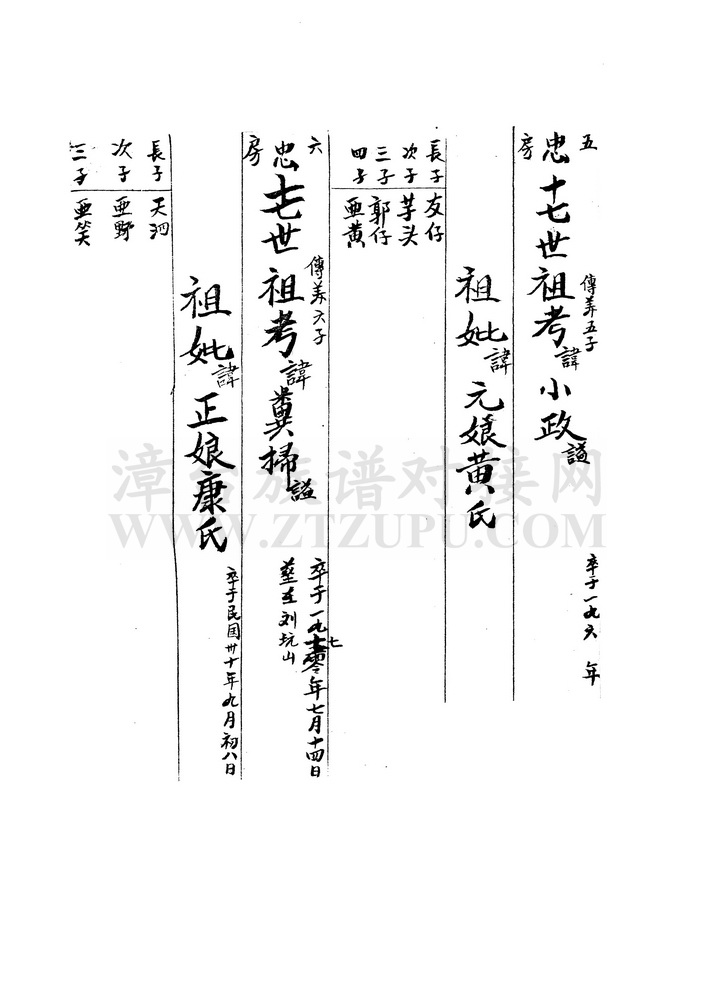 五
忠房
十七世祖考諱小政謚
傳養五子
卒于一九六 年
祖妣諱元娘黃氏
長子 友仔
次子 芋头
三子 郭仔
四子 亜黄
六
忠房
十七世祖考諱糞掃謚
傳养六子
卒于一九七零年七月十四日
塟在刘坑山
祖妣諱正娘康氏
卒于民国卅十年九月初八日
長子 天泗
次子 亜野
三子 亜笑
漳台族谱对接网
WWW.ZTZUPU.COM